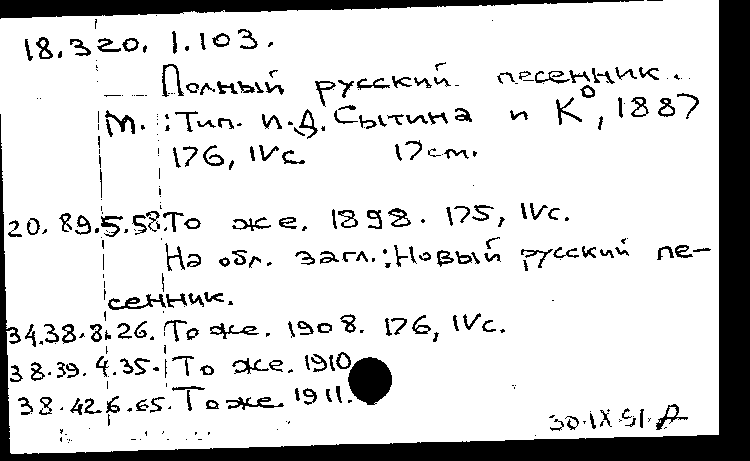 18.320.1.103.
Полный русский песенник.
М.: Тип. И.Д. Сытина и К⁰, 1887
176, IVс. 17см.
20.89.5.58. То же. 1898. 175, IVс.
На обл. загл.: Новый русский пе-
сенник.
34.38.8.26. То же. 1908. 176, IVс.
38.39.4.35. То же. 1910
38.42.6.65. То же. 1911.
30.IX.91.